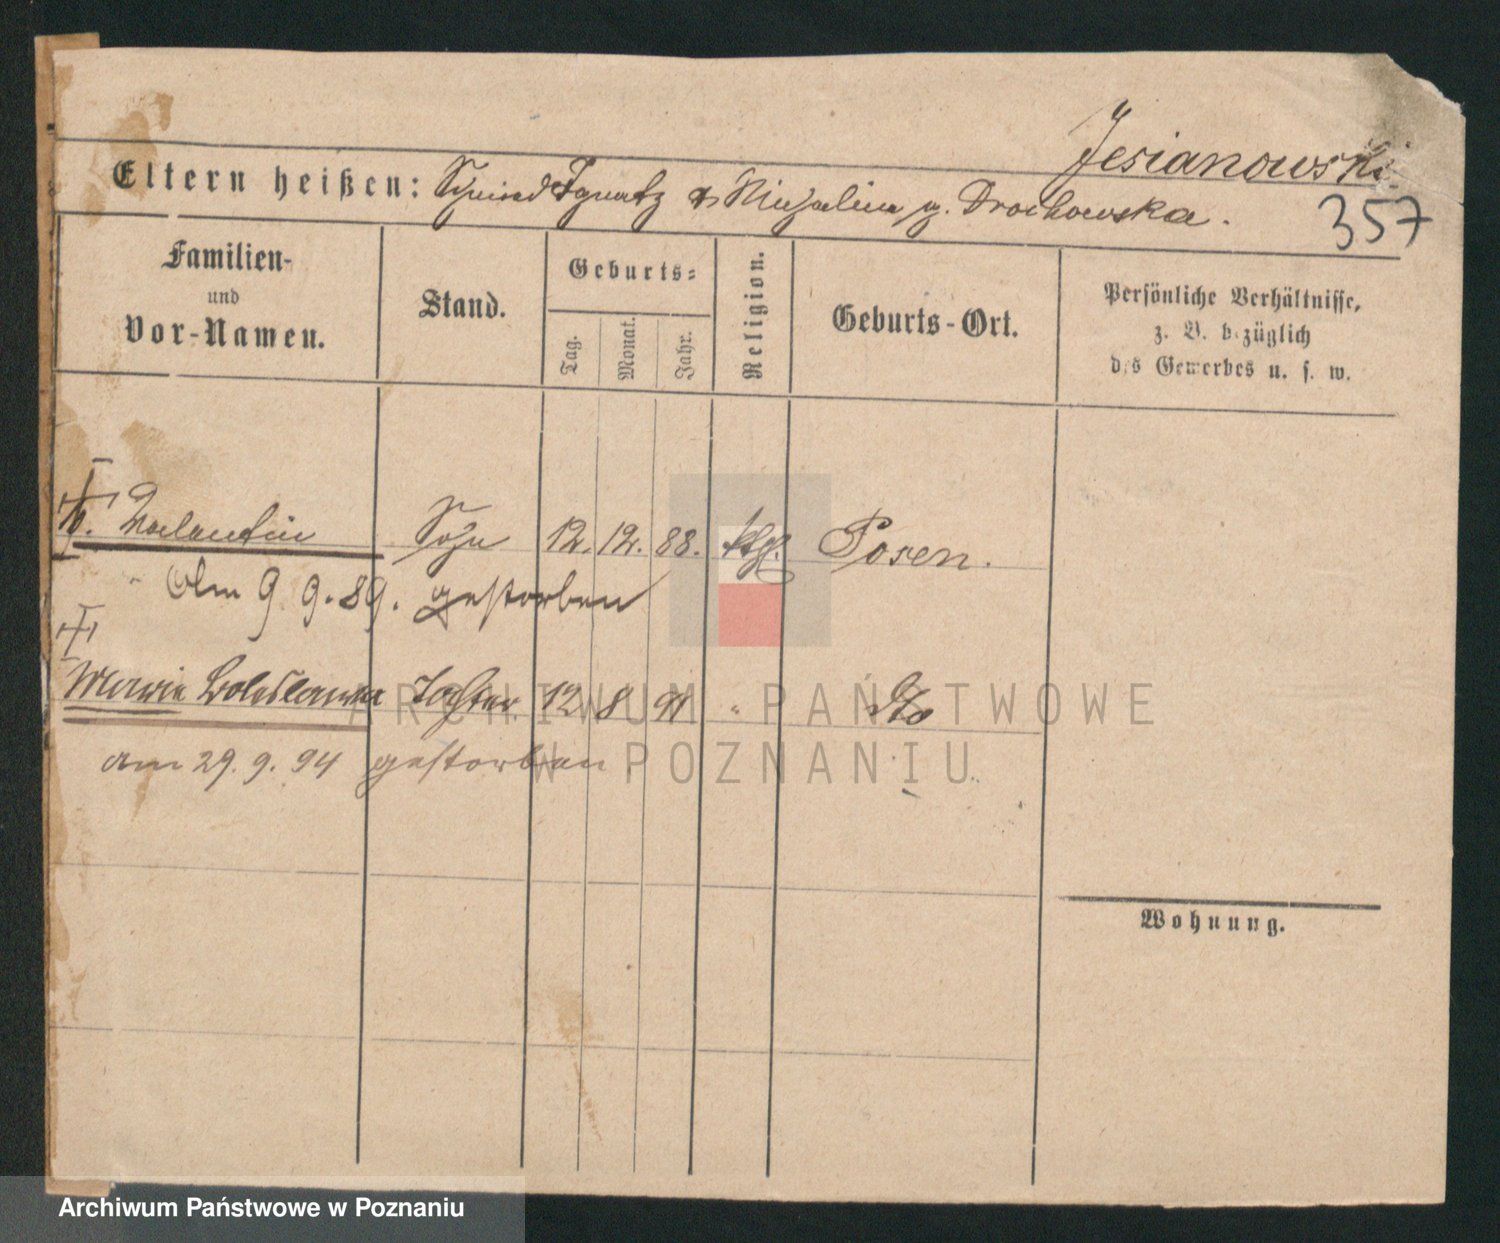 Jesianowski
Eltern heißen: Schmied Ignatz & Michalina g. Drochowska.
357
Familien-
und
Vor-Namen.
Stand.
Geburts-
Tag.
Monat.
Jahr.
Religion.
Geburts-Ort.
Persönliche Verhältnisse,
z. B. bezüglich
des Gewerbes u. s. w.
Valentin Sohn 12. 12. 88. kth. Posen.
Am 9. 9. 89. gestorben
Marie Boleslawa Tochter 12 8 91 " dto
am 29. 9. 94 gestorben
Wohnung.
ARCHIWUM PAŃSTWOWE
W POZNANIU
Archiwum Państwowe w Poznaniu